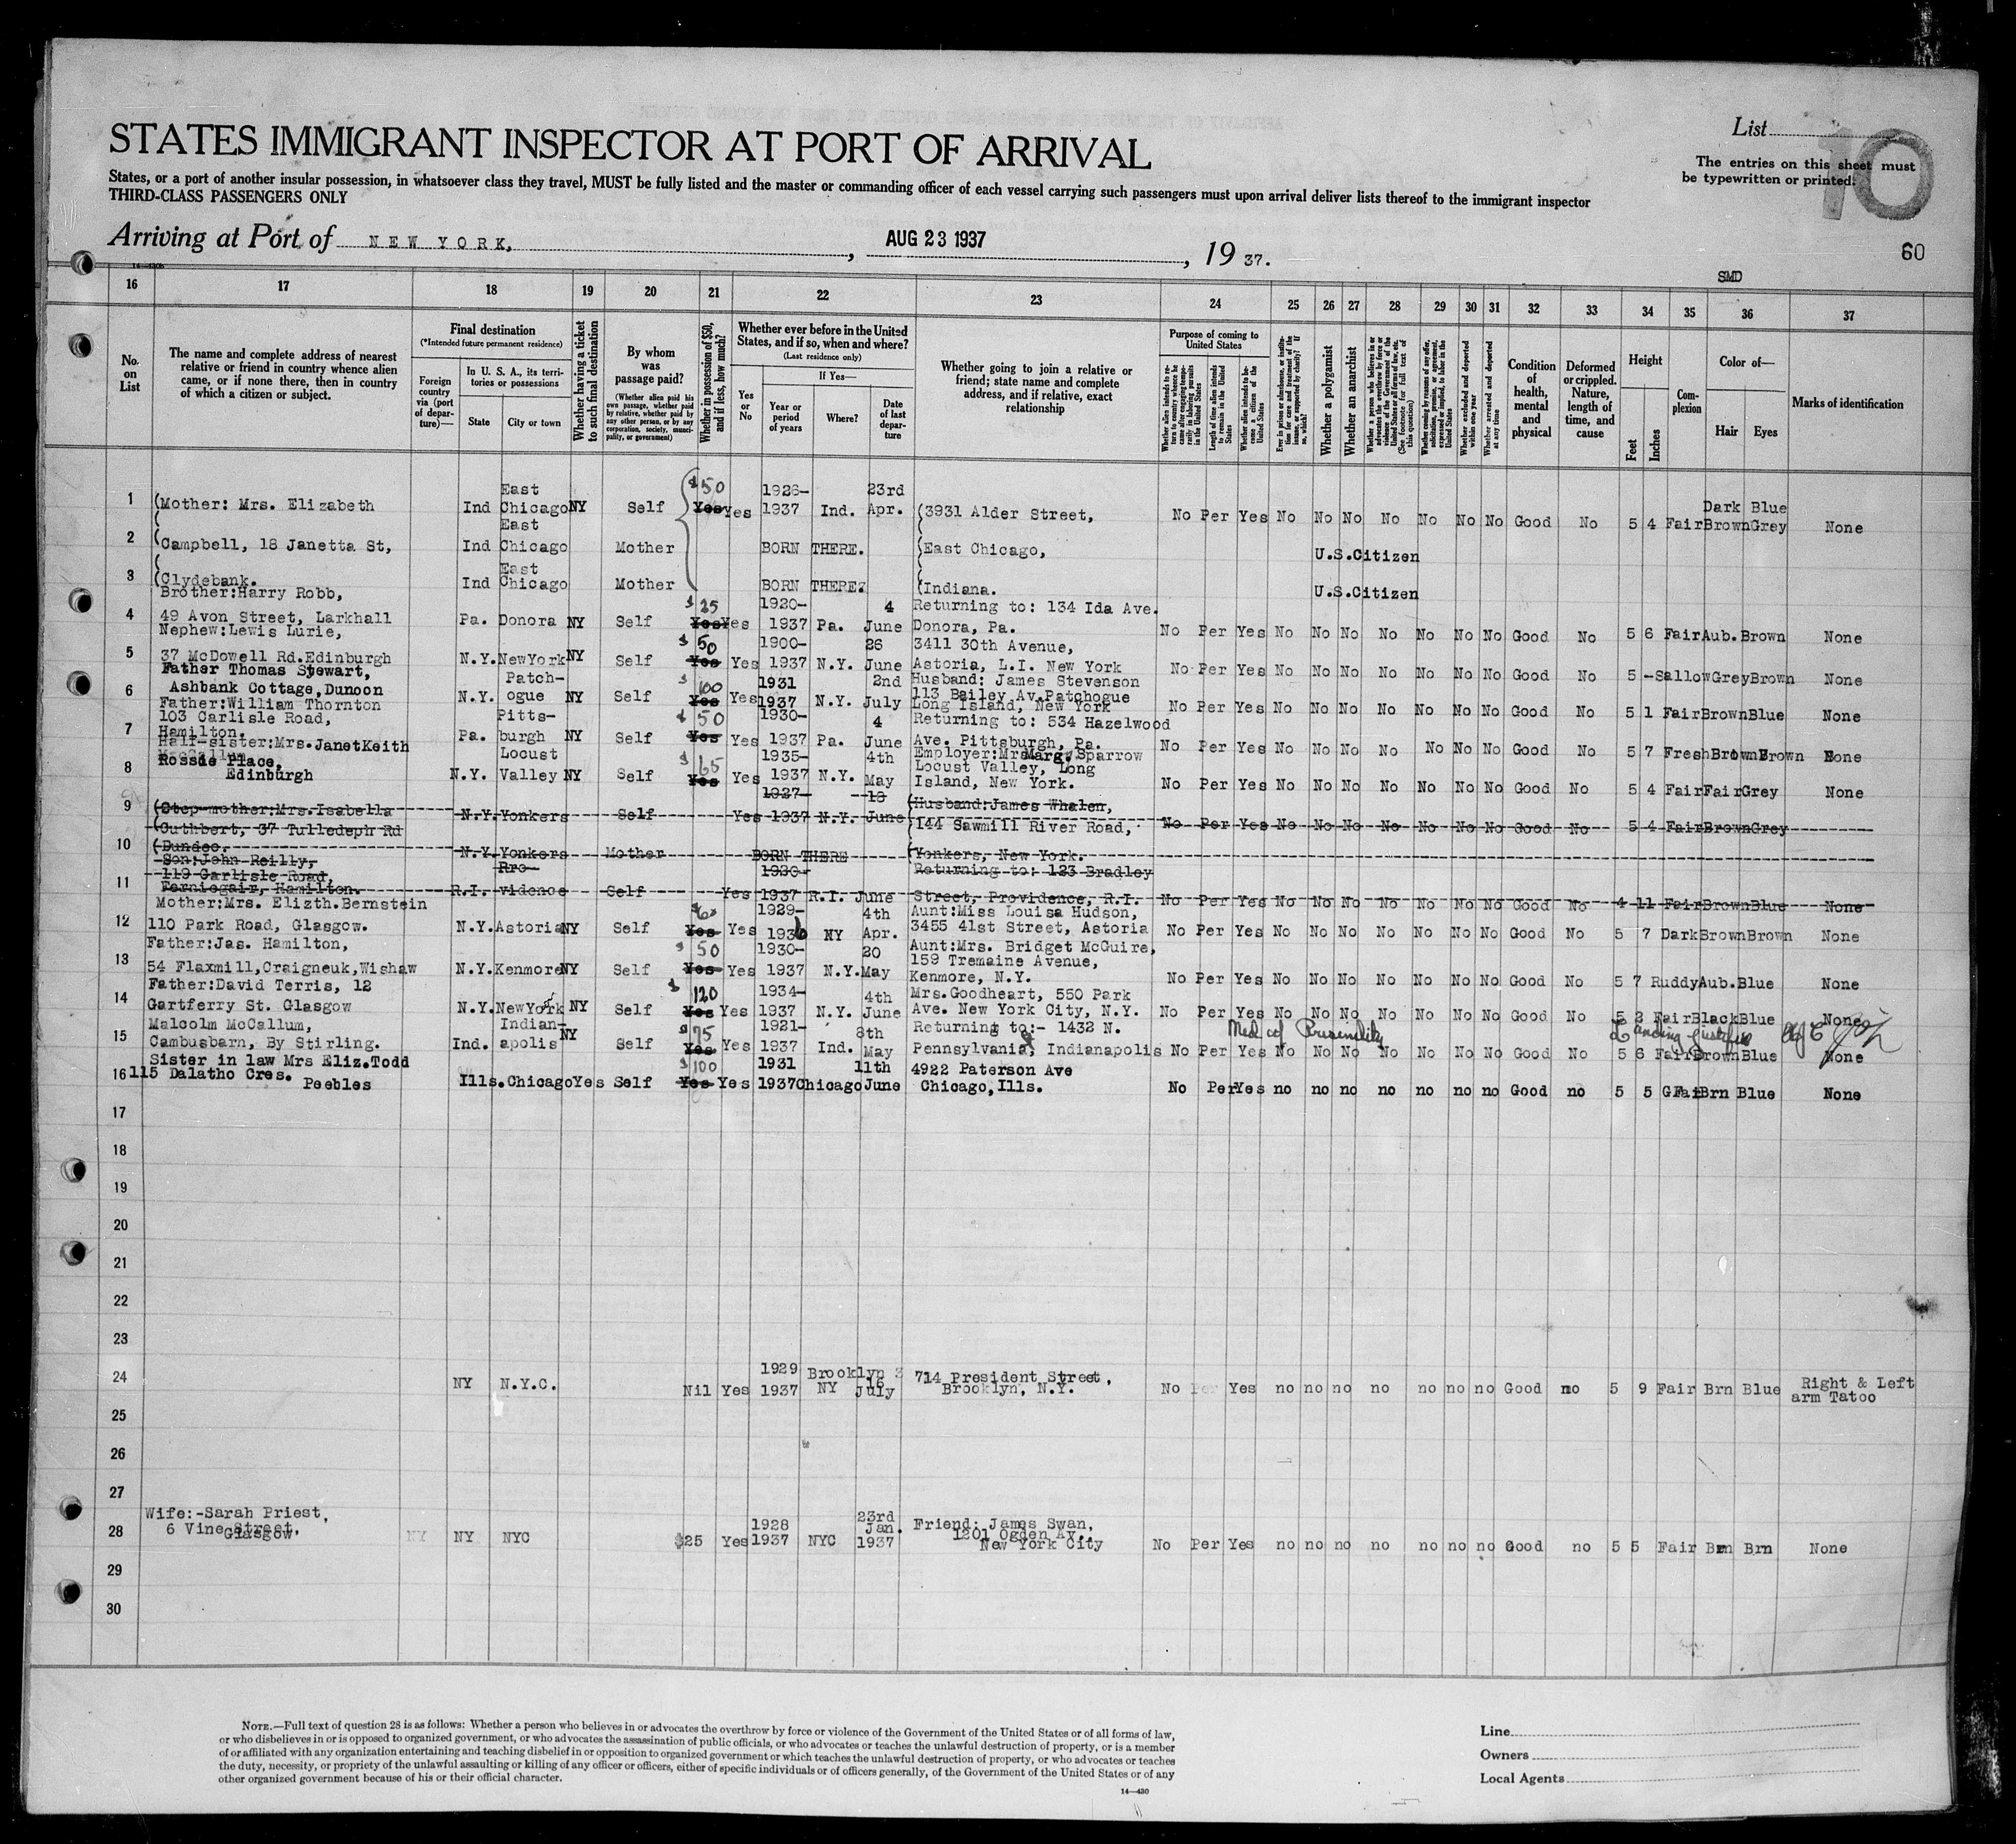 STATES IMMIGRANT INSPECTOR AT PORT OF ARRIVAL
List
10
The entries on this sheet must
be typewritten or printed.
States, or a port of another insular possession, in whatsoever class they travel, MUST be fully listed and the master or commanding officer of each vessel carrying such passengers must upon arrival deliver lists thereof to the immigrant inspector
THIRD-CLASS PASSENGERS ONLY
Arriving at Port of NEW YORK, AUG 23 1937, 19 37.
60
SMD
16 17 18 19 20 21 22 23 24 25 26 27 28 29 30 31 32 33 34 35 36 37
No. on List
The name and complete address of nearest relative or friend in country whence alien came, or if none there, then in country of which a citizen or subject.
Final destination
(*Intended future permanent residence)
Foreign country via (port of departure)—
In U. S. A., its territories or possessions
State
City or town
Whether having a ticket to such final destination
By whom was passage paid?
(Whether alien paid his own passage, whether paid by relative, whether paid by any other person, or by any corporation, society, municipality, or government)
Whether in possession of $50, and if less, how much?
Whether ever before in the United States, and if so, when and where?
(Last residence only)
Yes or No
If Yes—
Year or period of years
Where?
Date of last departure
Whether going to join a relative or friend; state name and complete address, and if relative, exact relationship
Purpose of coming to United States
Whether alien intends to return to country whence he came after engaging temporarily in laboring pursuits in the United States
Length of time alien intends to remain in the United States
Whether alien intends to become a citizen of the United States
Ever in prison or almshouse, or institution for care and treatment of the insane, or supported by charity? If so, which?
Whether a polygamist
Whether an anarchist
Whether a person who believes in or advocates the overthrow by force or violence of the Government of the United States or of all forms of law, etc. (See footnote for full text of this question)
Whether coming by reason of any offer, solicitation, promise, or agreement, expressed or implied, to labor in the United States
Whether excluded and deported within one year
Whether arrested and deported at any time
Condition of health, mental and physical
Deformed or crippled. Nature, length of time, and cause
Height
Feet
Inches
Complexion
Color of—
Hair
Eyes
Marks of identification
1 (Mother: Mrs. Elizabeth Ind East Chicago NY Self $50 Yes Yes 1926- 1937 Ind. 23rd Apr. (3931 Alder Street, No Per Yes No No No No No No No Good No 5 4 Fair Dark Brown Blue Grey None
2 (Campbell, 18 Janetta St, Ind East Chicago Mother BORN THERE. (East Chicago, U.S.Citizen
3 (Clydebank. Ind East Chicago Mother BORN THERE. (Indiana. U.S.Citizen
Brother:Harry Robb,
4 49 Avon Street, Larkhall Pa. Donora NY Self $25 Yes Yes 1920- 1937 Pa. 4 June Returning to: 134 Ida Ave. Donora, Pa. No Per Yes No No No No No No No Good No 5 6 Fair Aub. Brown None
Nephew:Lewis Lurie,
5 37 McDowell Rd.Edinburgh N.Y. NewYork NY Self $50 Yes Yes 1900- 1937 N.Y. 26 June 3411 30th Avenue, Astoria, L.I. New York No Per Yes No No No No No No No Good No 5 - Sallow Grey Brown None
Father Thomas Stewart,
6 Ashbank Cottage,Dunoon N.Y. Patch-ogue NY Self $100 Yes Yes 1931 1937 N.Y. 2nd July Husband: James Stevenson 113 Bailey Av.Patchogue Long Island, New York No Per Yes No No No No No No No Good No 5 1 Fair Brown Blue None
Father:William Thornton
103 Carlisle Road,
7 Hamilton. Pa. Pitts-burgh NY Self $50 Yes Yes 1930- 1937 Pa. 4 June Returning to: 534 Hazelwood Ave. Pittsburgh, Pa. No Per Yes No No No No No No No Good No 5 7 Fresh Brown None
Half-sister:Mrs.JanetKeith
8 Place, Edinburgh N.Y. Locust Valley NY Self $65 Yes Yes 1935- 1937 N.Y. 4th May Employer: Marg. Sparrow Locust Valley, Long Island, New York. No Per Yes No No No No No No No Good No 5 4 Fair Fair Grey None
9 (Step-mother:Mrs.Isabella N.Y. Yonkers Self Yes 1927- 1937 N.Y. June (Husband:James Whalen, (144 Sawmill River Road, No Per Yes No No No No No No No Good No 5 4 Fair Brown Grey
(Cuthbert, 37 Tulledeph Rd
10 (Dundee. N.Y. Yonkers Mother BORN THERE (Yonkers, New York.
Son:John Reilly,
119 Carlisle Road,
11 Ferniegair, Hamilton. R.I. Pro-vidence Self Yes 1930- 1937 R.I. June Returning to: 123 Bradley Street, Providence, R.I. No Per Yes No No No No No No No Good No 4 11 Fair Brown Blue None
Mother:Mrs. Elizth.Bernstein
12 110 Park Road, Glasgow. N.Y. Astoria NY Self Yes Yes 1929- 1936 NY 4th Apr. Aunt:Miss Louisa Hudson, 3455 41st Street, Astoria No Per Yes No No No No No No No Good No 5 7 Dark Brown Brown None
Father:Jas. Hamilton,
13 54 Flaxmill,Craigneuk,Wishaw N.Y. Kenmore NY Self $50 Yes Yes 1930- 1937 N.Y. 20 May Aunt:Mrs. Bridget McGuire, 159 Tremaine Avenue, Kenmore, N.Y. No Per Yes No No No No No No No Good No 5 7 Ruddy Aub. Blue None
Father:David Terris, 12
14 Gartferry St. Glasgow N.Y. NewYork NY Self $120 Yes Yes 1934- 1937 N.Y. 4th June Mrs.Goodheart, 550 Park Ave. New York City, N.Y. No Per Yes No No No No No No No Good No 5 2 Fair Black Blue None
Malcolm McCallum,
15 Cambusbarn, By Stirling. Ind. Indian-apolis NY Self $75 Yes Yes 1921- 1937 Ind. 8th May Returning to:- 1432 N. Pennsylvania, Indianapolis No Per Yes No No No No No No No Good No 5 6 Fair Brown Blue None
Sister in law Mrs Eliz.Todd
16 115 Dalatho Cres. Peebles Ills. Chicago Yes Self $100 Yes Yes 1931 1937 Chicago 11th June 4922 Paterson Ave Chicago, Ills. No Per Yes no no no no no no no Good no 5 5 Fair Brn Blue None
17
18
19
20
21
22
23
24 NY N.Y.C. Nil Yes 1929 1937 Brooklyn NY 16 July 714 President Street, Brooklyn, N.Y. No Per Yes no no no no no no no Good no 5 9 Fair Brn Blue Right & Left arm Tatoo
25
26
27
Wife:-Sarah Priest,
28 6 Vine Street, Glasgow NY NY NYC $25 Yes 1928 1937 NYC 23rd Jan. 1937 Friend: James Swan, 1201 Ogden Av. New York City No Per Yes no no no no no no no Good no 5 5 Fair Brn Brn None
29
30
NOTE.—Full text of question 28 is as follows: Whether a person who believes in or advocates the overthrow by force or violence of the Government of the United States or of all forms of law,
or who disbelieves in or is opposed to organized government, or who advocates the assassination of public officials, or who advocates or teaches the unlawful destruction of property, or is a member
of or affiliated with any organization entertaining and teaching disbelief in or opposition to organized government or which teaches the unlawful destruction of property, or who advocates or teaches
the duty, necessity, or propriety of the unlawful assaulting or killing of any officer or officers, either of specific individuals or of officers generally, of the Government of the United States or of any
other organized government because of his or their official character.
14—430
Line
Owners
Local Agents